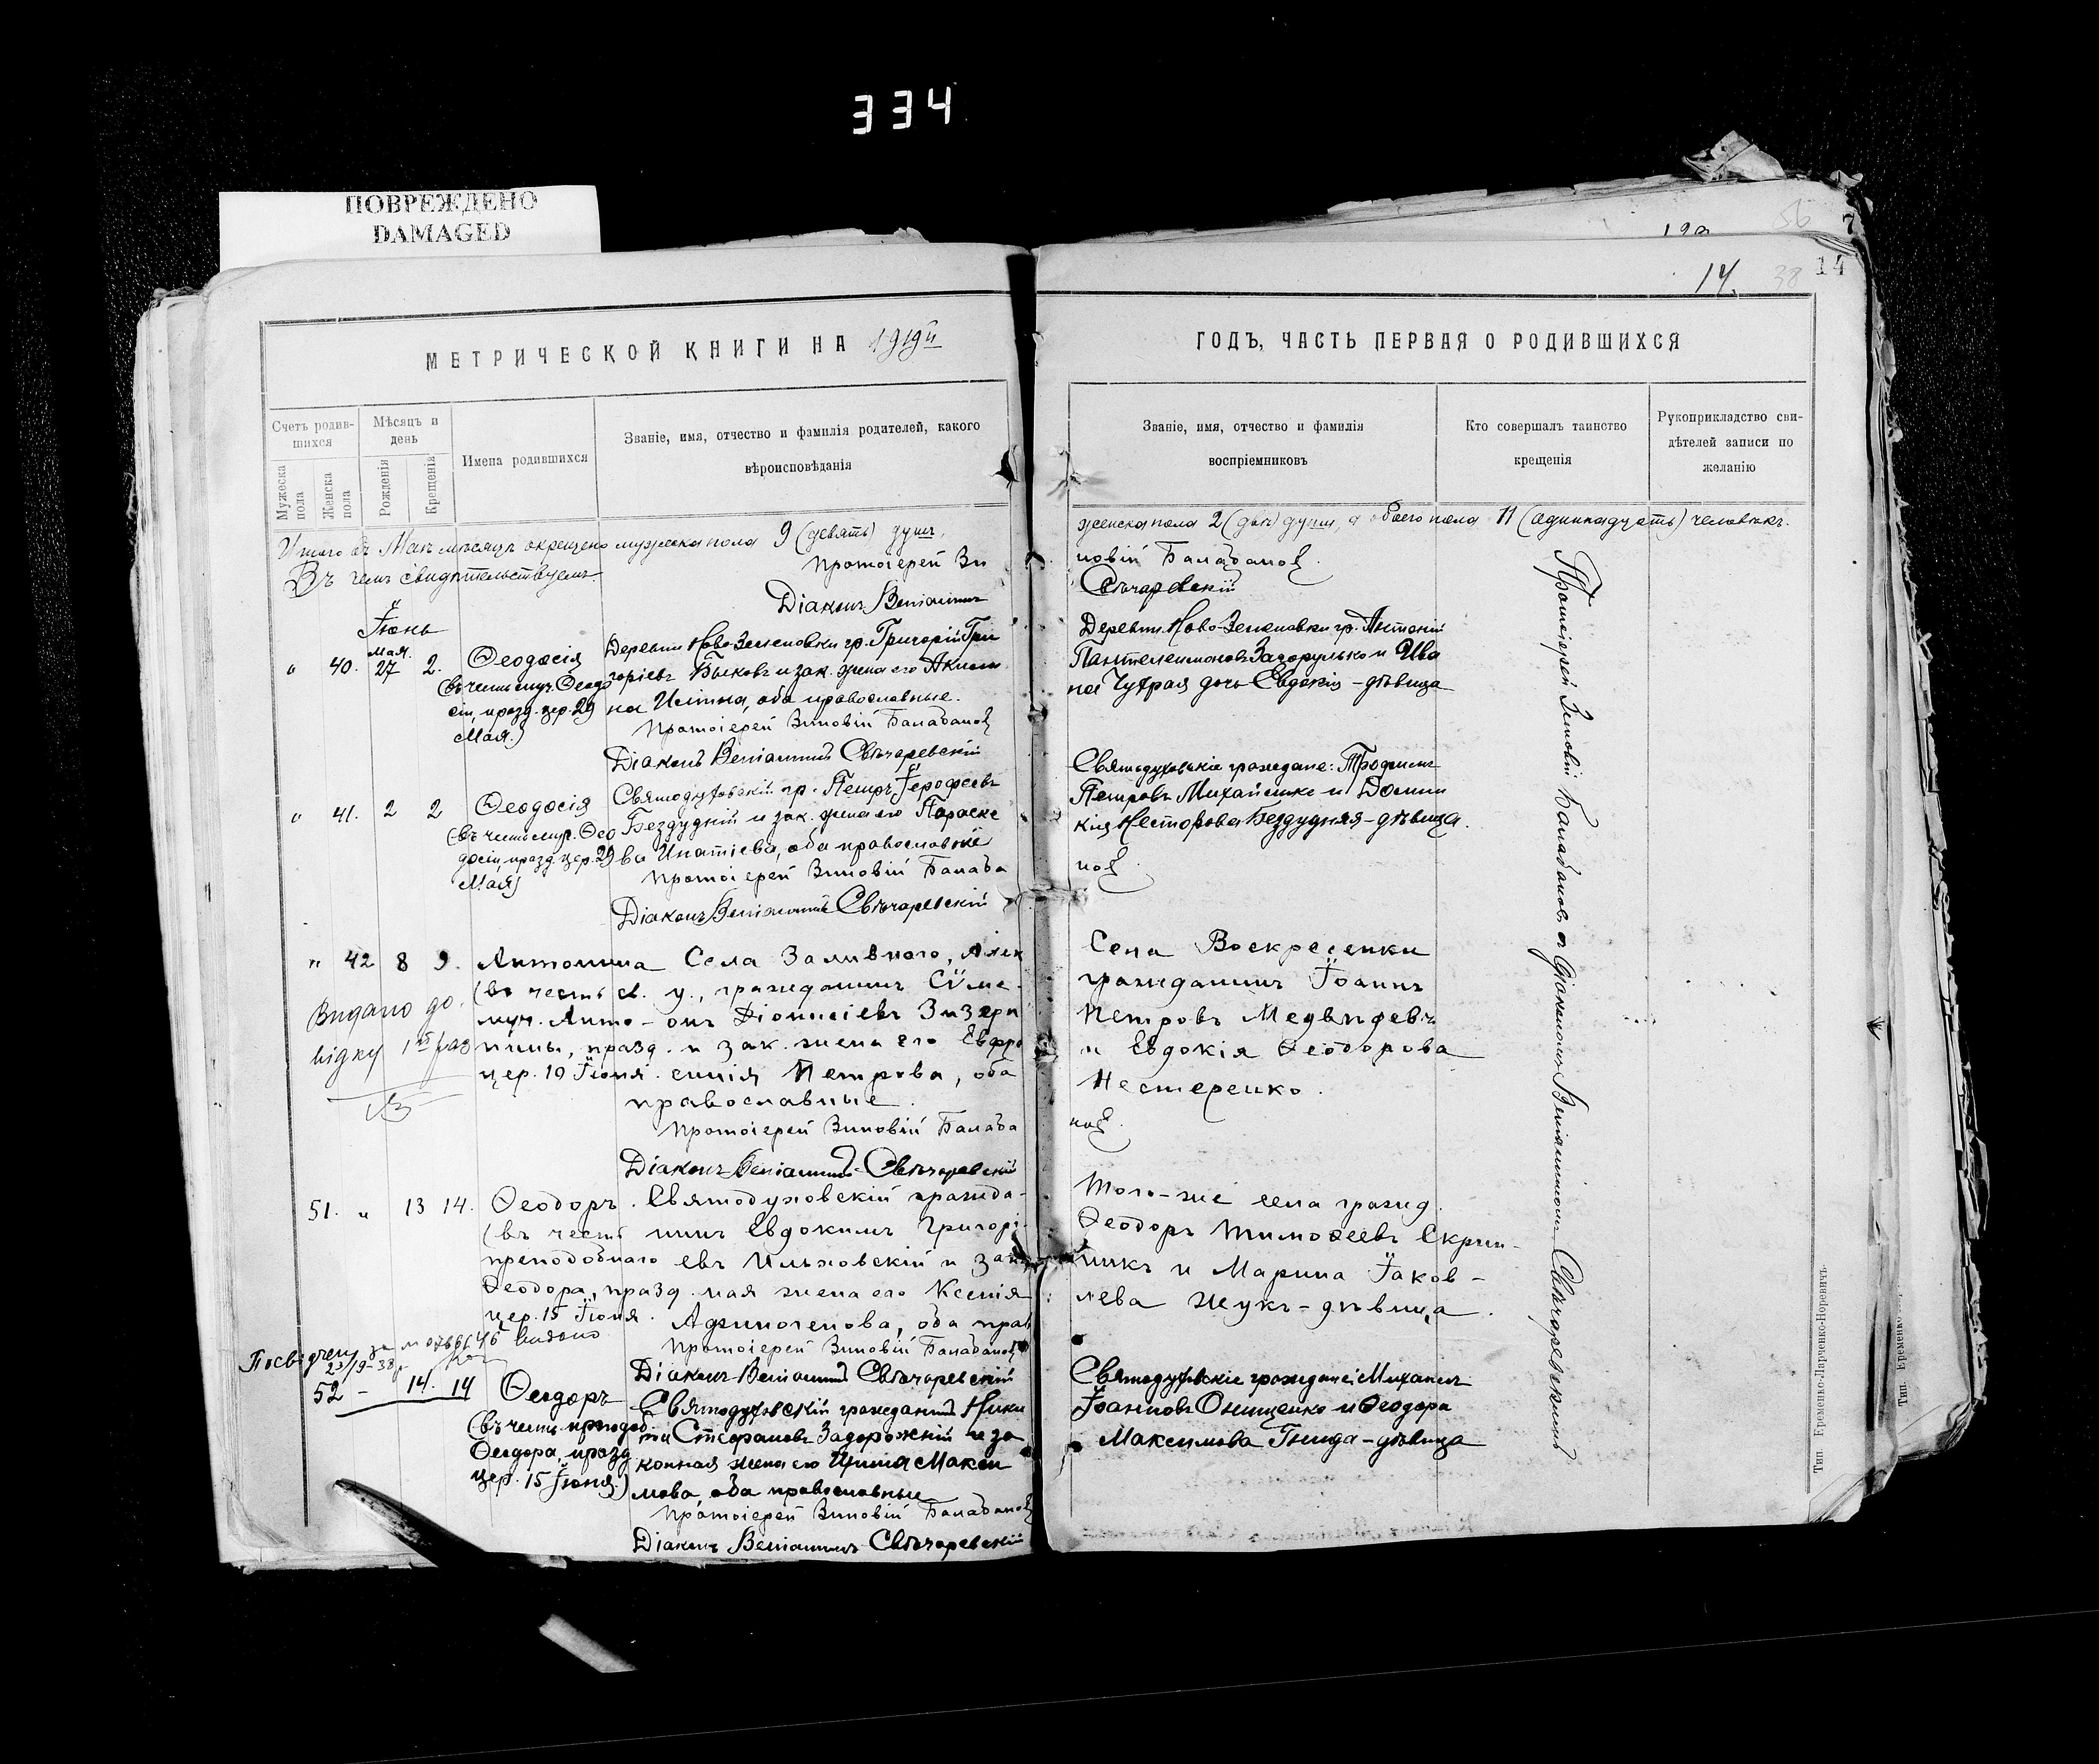 334
ПОВРЕЖДЕНО
DAMAGED
56 7
14. 38 14
МЕТРИЧЕСКОЙ КНИГИ НА 1919й
ГОДЪ, ЧАСТЬ ПЕРВАЯ О РОДИВШИХСЯ
Счетъ родив-
шихся
Мужеска
пола
Женска
пола
Мѣсяцъ и
день
Рожденія
Крещенія
Имена родившихся
Званіе, имя, отчество и фамилія родителей, какого
вѣроисповѣданія
Званіе, имя, отчество и фамилія
воспріемниковъ
Кто совершалъ таинство
крещенія
Рукоприкладство сви-
дѣтелей записи по
желанію
Итого въ Маѣ мѣсяцѣ окрещено мужеска пола 9 (девять) душъ,
женска пола 2 (двѣ) души, а обоего пола 11 (одиннадцать) человѣкъ.
Въ чемъ свидѣтельствуемъ.
Протоіерей Зи
новій Балабановъ
Діаконъ Веніаминъ
Свѣчаревскій
Іюнь
" 40. Мая. 27 2.
Ѳеодосія
(въ честь муч. Ѳеодо
сіи, празд. цер. 29
Мая.)
Деревни Ново-Зеленовки гр. Григорій Гри
горіевъ Быковъ и зак. жена его Акили
на Исаіина, оба православные.
Протоіерей Зиновій Балабановъ
Діаконъ Веніаминъ Свѣчаревскій
Деревни Ново-Зеленовки гр. Антоній
Пантелеимоновъ Загорулько и Ива
на Чуѣрая дочь Евдокія - дѣвица
" 41. 2 2
Ѳеодосія
(въ честь муч. Ѳео
досіи, празд. цер. 29
Мая)
Святодуховскій гр. Петръ Іероѳеевъ
Бездудній и зак. жена его Параске
ва Ипатіева, оба православные
Протоіерей Зиновій Балаба
Діаконъ Веніаминъ Свѣчаревскій
Святодуховскіе граждане: Трофимъ
Петровъ Михайленко и Домни
кія Несторова Бездудняя - дѣвица.
новъ
" 42 8 9.
Антонина
(въ честь св.
муч. Анто-
нины, празд.
цер. 10 Іюня.
Села Заливного, Алек
у., гражданинъ Сѵме-
онъ Діонисіевъ Зизерн
и зак. жена его Евфро
синія Петрова, оба
православные.
Протоіерей Зиновій Балаба
Діаконъ Веніаминъ Свѣчаревскій
Села Воскресенки
гражданинъ Іоаннъ
Петровъ Медвидевъ
и Евдокія Ѳеодорова
Нестеренко.
новъ.
Видано до-
відку
51. " 13 14.
Ѳеодоръ.
(въ честь
преподобнаго
Ѳеодора, празд.
цер. 15 Іюня.
Святодуховскій гражда-
нинъ Евдокимъ Григорі-
евъ Ильховскій и закон
ная жена его Ксенія
Афиногенова, оба прав
Протоіерей Зиновій Балабановъ
Діаконъ Веніаминъ Свѣчаревскій
Того-же села гражд.
Ѳеодоръ Тимоѳеевъ Скрип-
никъ и Марина Іаков-
лева Жукъ - дѣвица.
52 - 14. 14
Ѳеодоръ
(въ честь преподоб.
Ѳеодора, празд
цер. 15 Іюня.)
Святодуховскій гражданинъ Ники
та Стефановъ Задорожній и за
конная жена его Ирина Макси
мова, оба православные
Протоіерей Зиновій Балабановъ
Діаконъ Веніаминъ Свѣчаревскій
Святодуховскіе граждане: Михаилъ
Іоанновъ Онищенко и Ѳеодора
Максимова Гнида - дѣвица
Протоіерей Зиновій Балабановъ съ діакономъ Веніаминомъ Свѣчаревскимъ
Тип. Еременко-Ларченко-Норевичъ.
Тип. Еременко